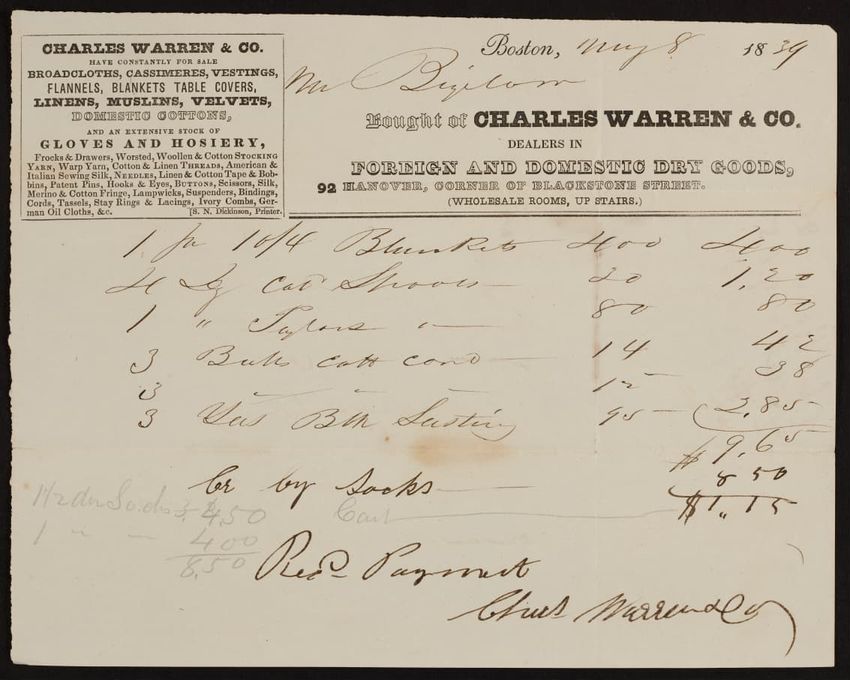 CHARLES WARREN & CO.
HAVE CONSTANTLY FOR SALE
BROADCLOTHS, CASSIMERES, VESTINGS,
FLANNELS, BLANKETS TABLE COVERS,
LINENS, MUSLINS, VELVETS,
DOMESTIC COTTONS,
AND AN EXTENSIVE STOCK OF
GLOVES AND HOSIERY,
Frocks & Drawers, Worsted, Woollen & Cotton STOCKING
YARN, Warp Yarn, Cotton & Linen THREADS, American &
Italian Sewing Silk, NEEDLES, Linen & Cotton Tape & Bob-
bins, Patent Pins, Hooks & Eyes, BUTTONS, Scissors, Silk,
Merino & Cotton Fringe, Lampwicks, Suspenders, Bindings,
Cords, Tassels, Stay Rings & Lacings, Ivory Combs, Ger-
man Oil Cloths, &c. [S. N. Dickinson, Printer.
Boston, 8 1839
Mr Bigelow
Bought of CHARLES WARREN & CO.
DEALERS IN
FOREIGN AND DOMESTIC DRY GOODS,
92 HANOVER, CORNER OF BLACKSTONE STREET.
(WHOLESALE ROOMS, UP STAIRS.)
1 pr 10/4 Blankets 400 400
4 Spools 1,20
1 " Taylors " 80 80
3 cord 14 42
3 38
3 Lasting 95 2,85
$9,65
Cr by Socks 8 50
$1,15
4,50
1 " 400
8,50
Recd Payment
Chas Warren & Co